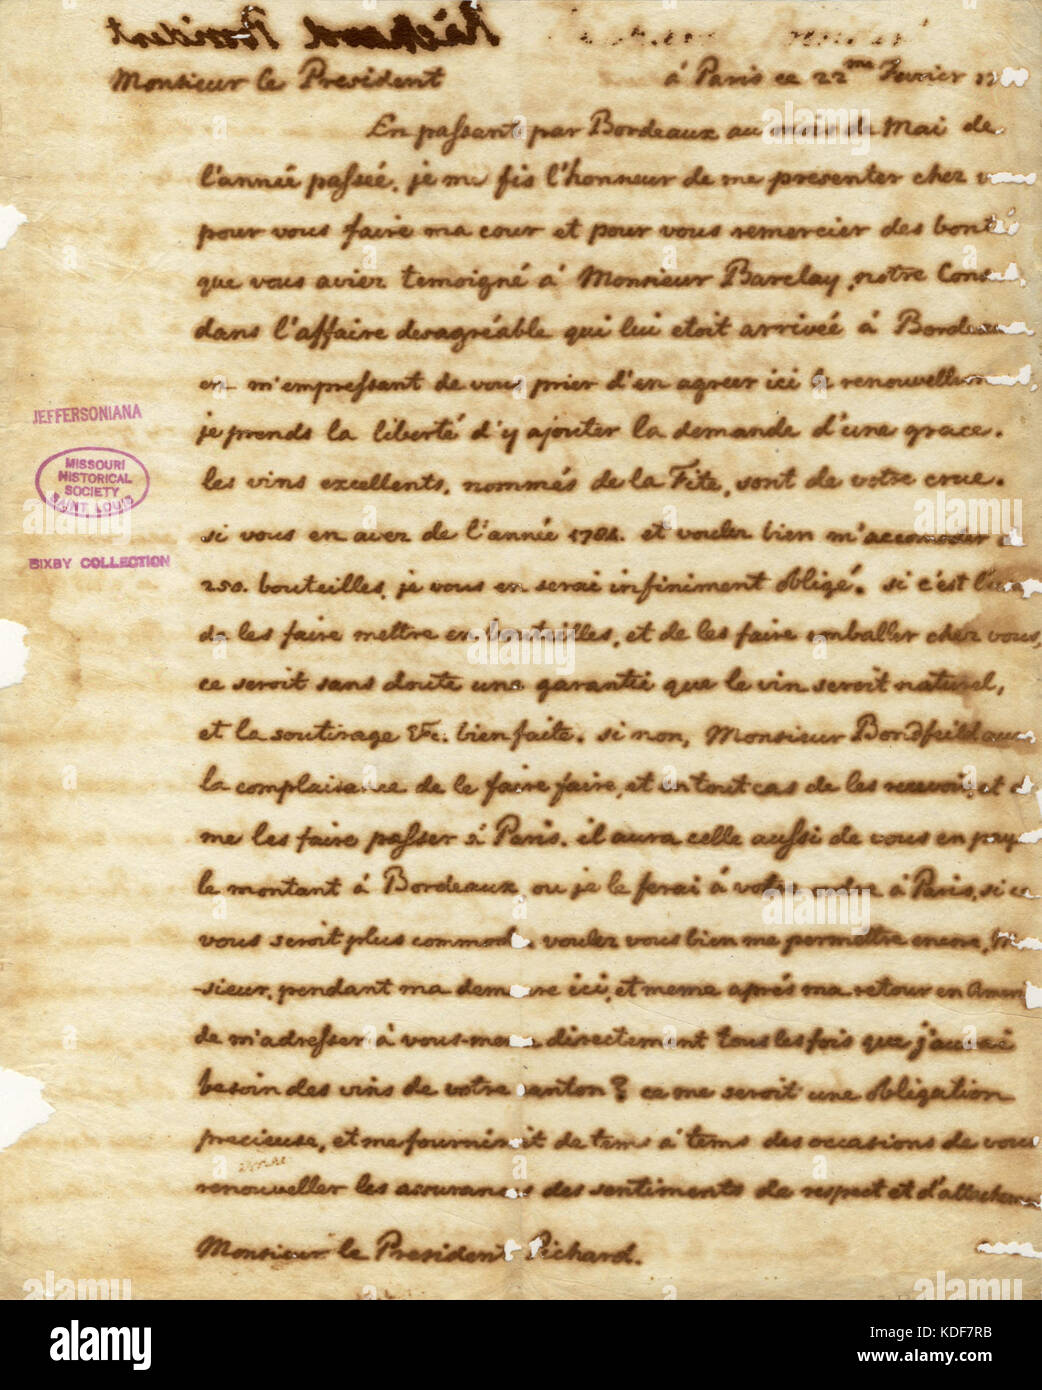 Monsieur le President
á Paris ce 22me Fevrier 17
En passant par Bordeaux au mois de Mai de
l'année passée, je me fis l'honneur de me presenter chez v
pour vous faire ma cour et pour vous remercier des bonté
que vous aviez temoigné á Monsieur Barclay, notre Consu
dans l'affaire desagréable qui lui etoit arriveé á Bordeau
en m'empressant de vous prier d'en agreer ici le renouvellem
je prends la liberté d'y ajouter la demande d'une grace.
les vins excellents, nommés de la Fite, sont de votre crue.
si vous en avez de l'année 1784. et voulez bien m'accomoder
250. bouteilles, je vous en serai infiniment obligé. si c'est
de les faire mettre en bouteilles, et de les faire emballer chez vous,
ce seroit sans doute une garantie que le vin seroit naturel,
et la soutirage &c. bienfaite. si non, Monsieur Bondfeild aur
la complaisance de le faire faire, et en tout cas de les recevoir, et d
me les faire passer á Paris. il aura celle aussi de vous en pay
le montant á Bordeaux, ou je le ferai á votre ordre á Paris, si ce
vous seroit plus commode. voulez vous bien me permettre encore, Mo
-sieur, pendant ma demeure ici, et meme aprés ma retour en Amer
de m'adresser á vous-meme directement tous les fois que j'aurai
besoin des vins de votre canton? ce me seroit une obligation
precieuse, et me fourniroit de tems á tems des occasions de vous
renouveller les assurances des sentiments de respect et d'attachem
Monsieur le President Pichard.
JEFFERSONIANA
MISSOURI
HISTORICAL
SOCIETY
SAINT LOUIS
BIXBY COLLECTION
alamy
Image ID: KDF7RB
www.alamy.com